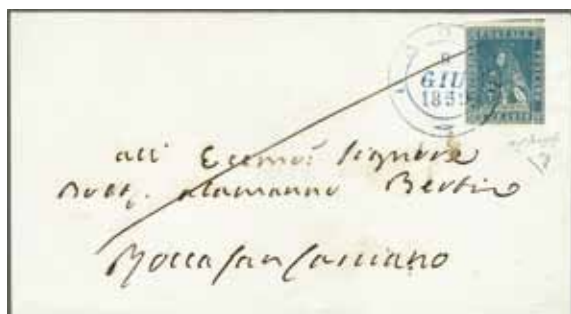 8
GIU
1859
all Eccmo: Signore
Dott. Alamanno Bertini
Rocca San Casciano